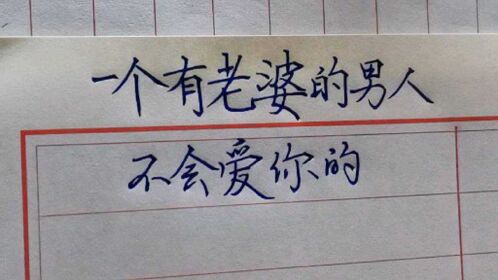 一个有老婆的男人
不会爱你的